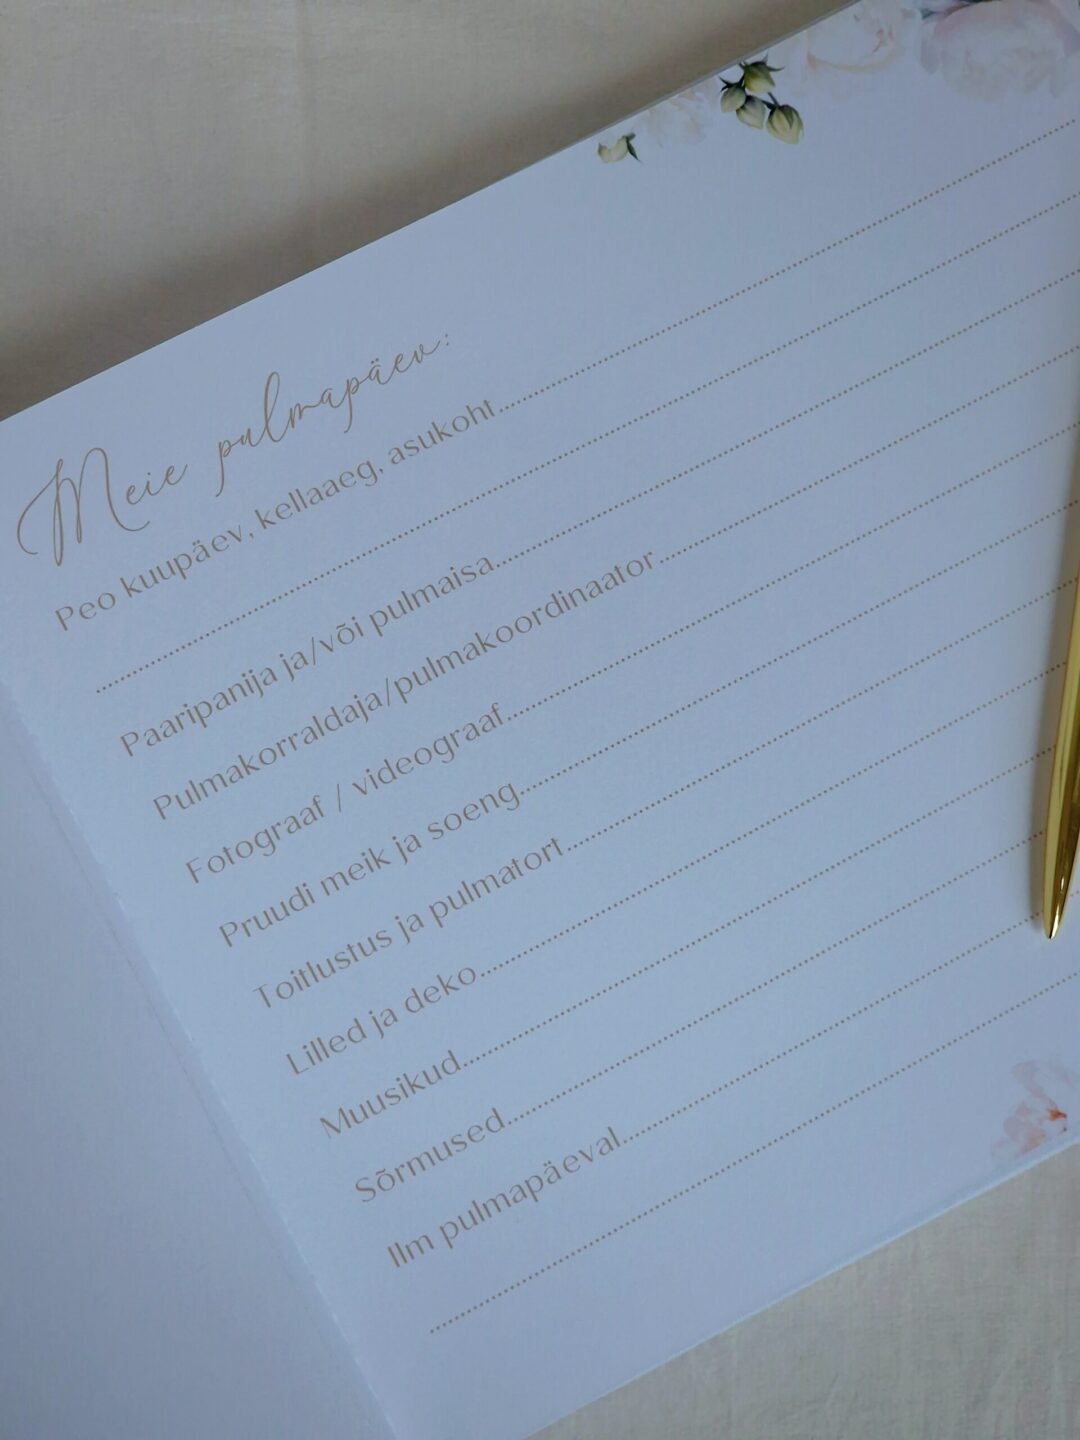 Meie pulmapäev:
Peo kuupäev, kellaaeg, asukoht
Paaripanija ja/või pulmaisa
Pulmakorraldaja/pulmakoordinaator
Fotograaf / videograaf
Pruudi meik ja soeng
Toitlustus ja pulmatort
Lilled ja deko
Muusikud
Sõrmused
Ilm pulmapäeval